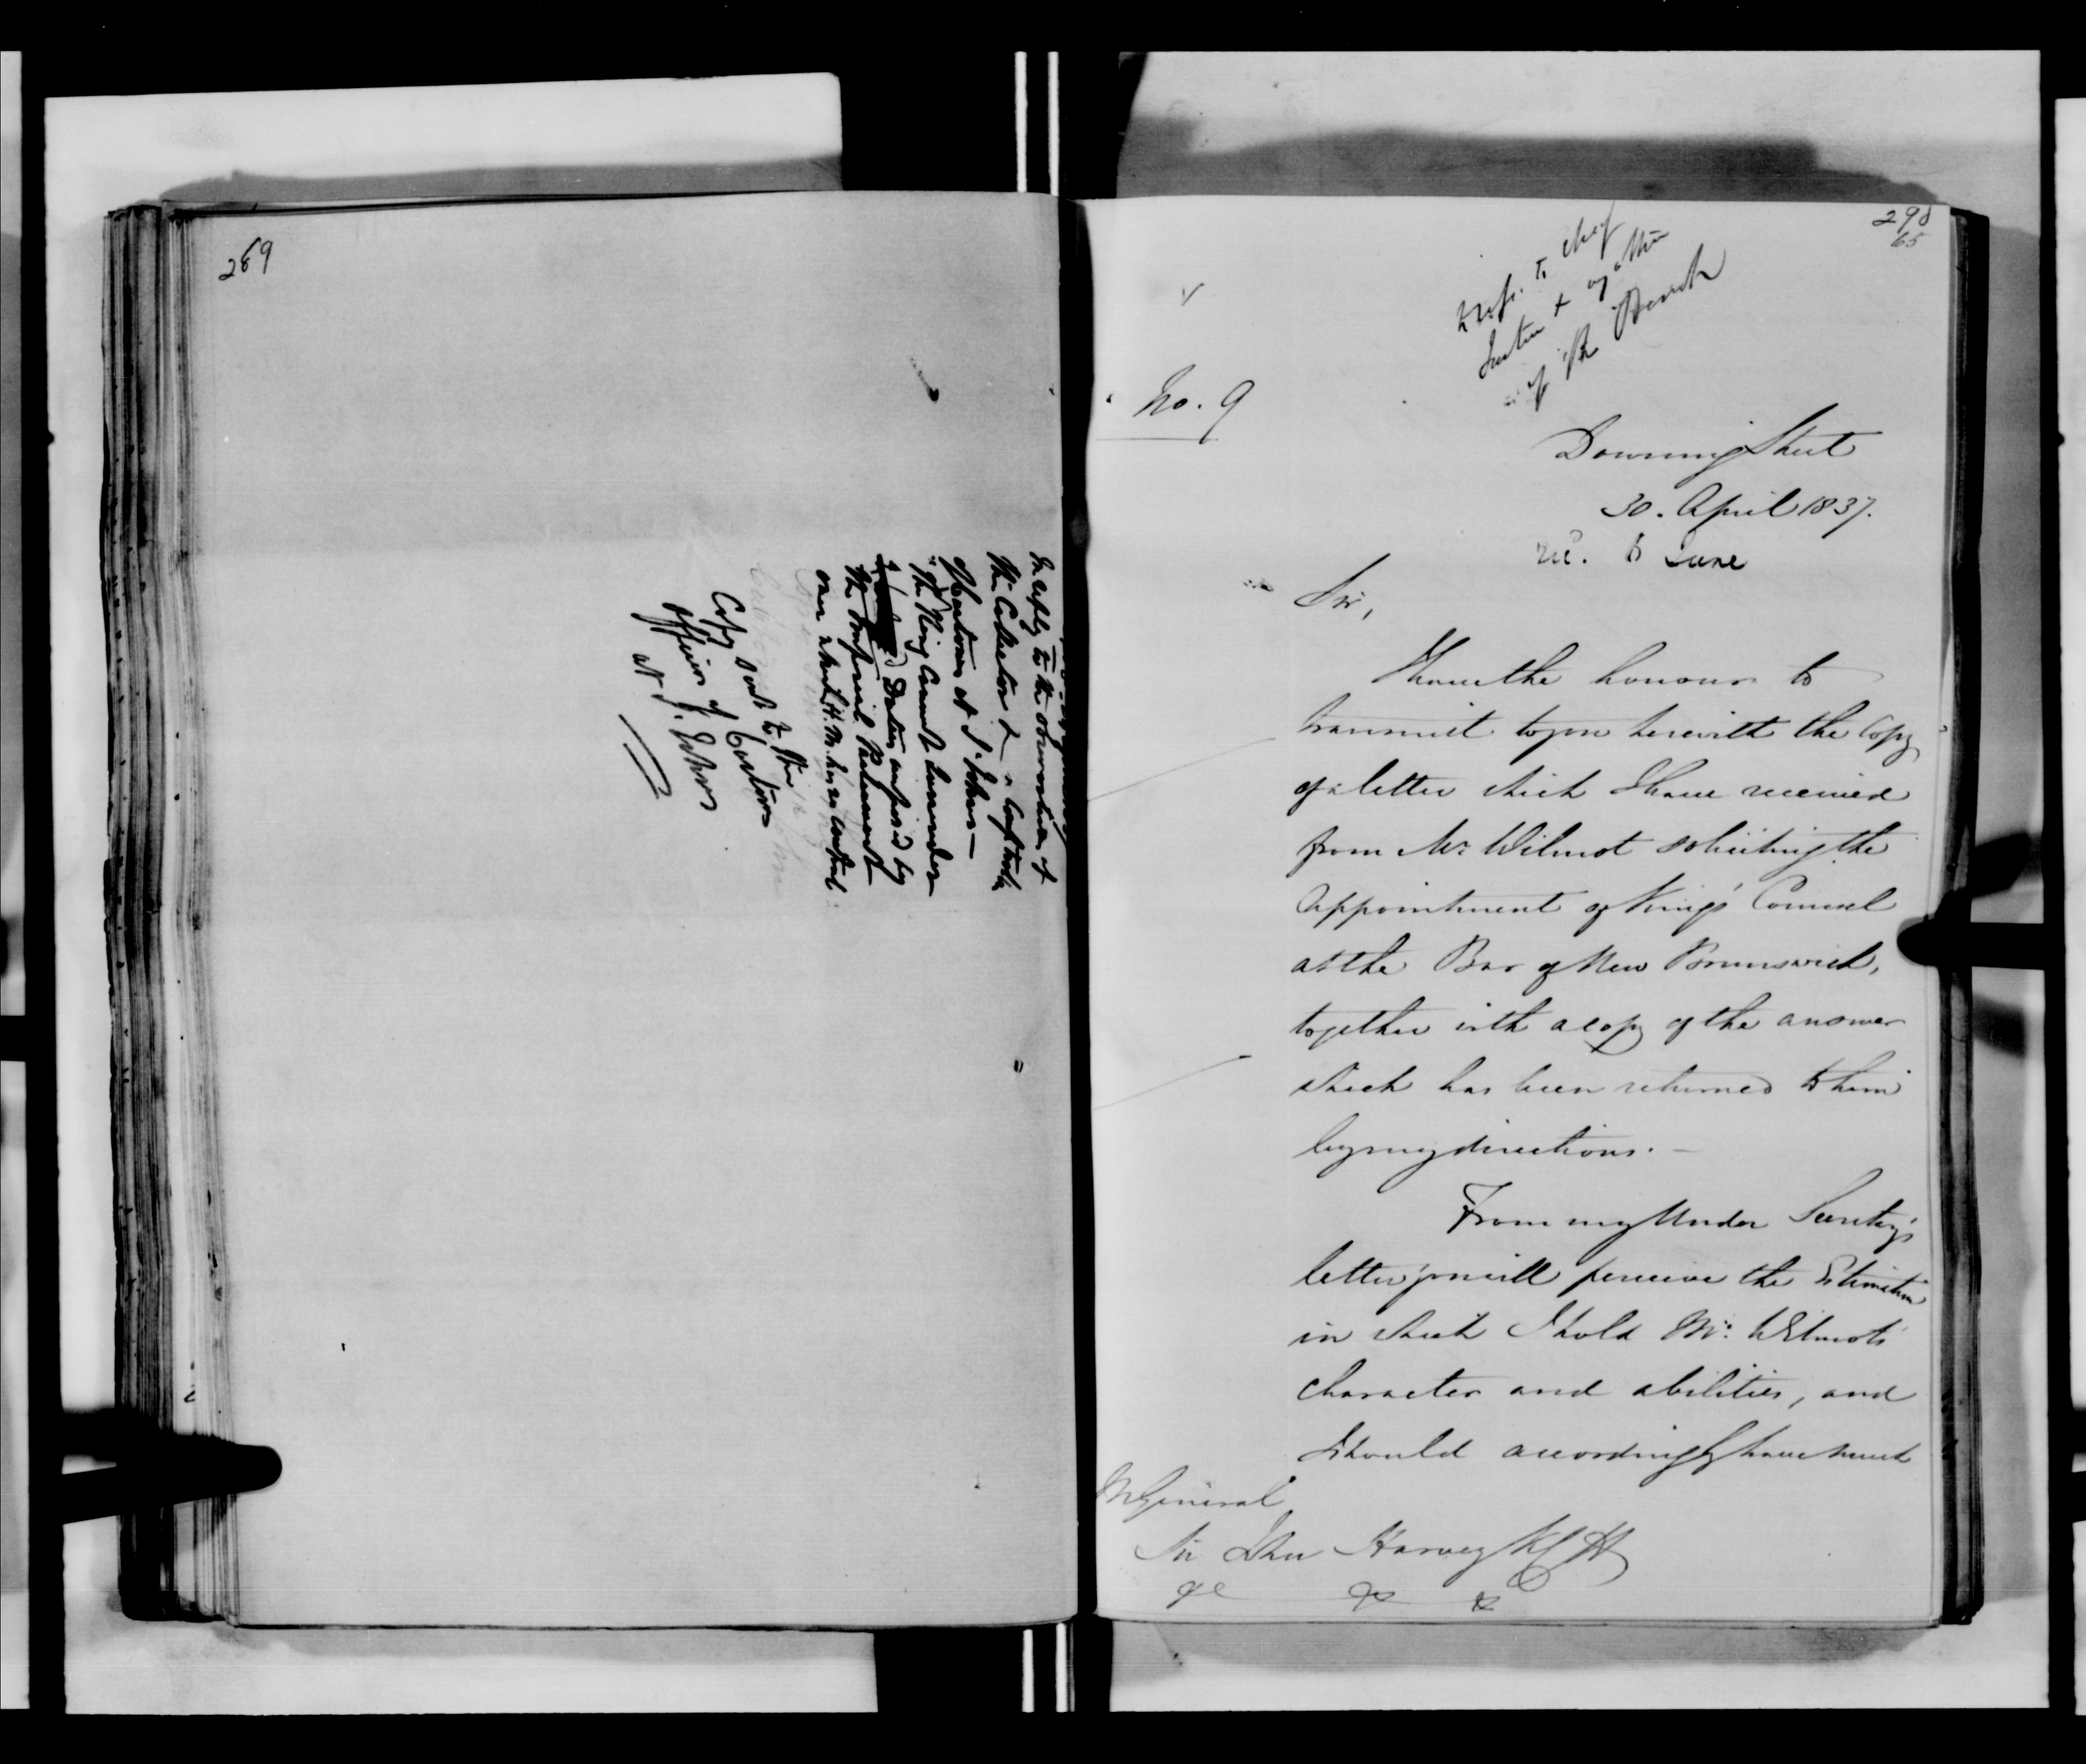 269
In reply to the observation of
the Collector & Comptroller
of Customs at St. John —
"The King cannot surrender
Duties imposed by
the Imperial Parliament
over which H. M. has no control
Copy sent to the
Officers of Customs
at St. John
298
65
Refer to Chief
Justice &
of the Bench
No. 9
Downing Street
30. April 1837.
rec. 6 June
Sir,
I have the honour to
transmit to you herewith the Copy
of a letter which I have received
from Mr. Wilmot soliciting the
appointment of King's Counsel
at the Bar of New Brunswick,
together with a copy of the answer
which has been returned to him
by my directions. —
From my Under Secretary's
letter you will perceive the Estimation
in which I hold Mr. Wilmot's
character and abilities, and
I should accordingly have much
M General
Sir John Harvey KCH
&c &c &c